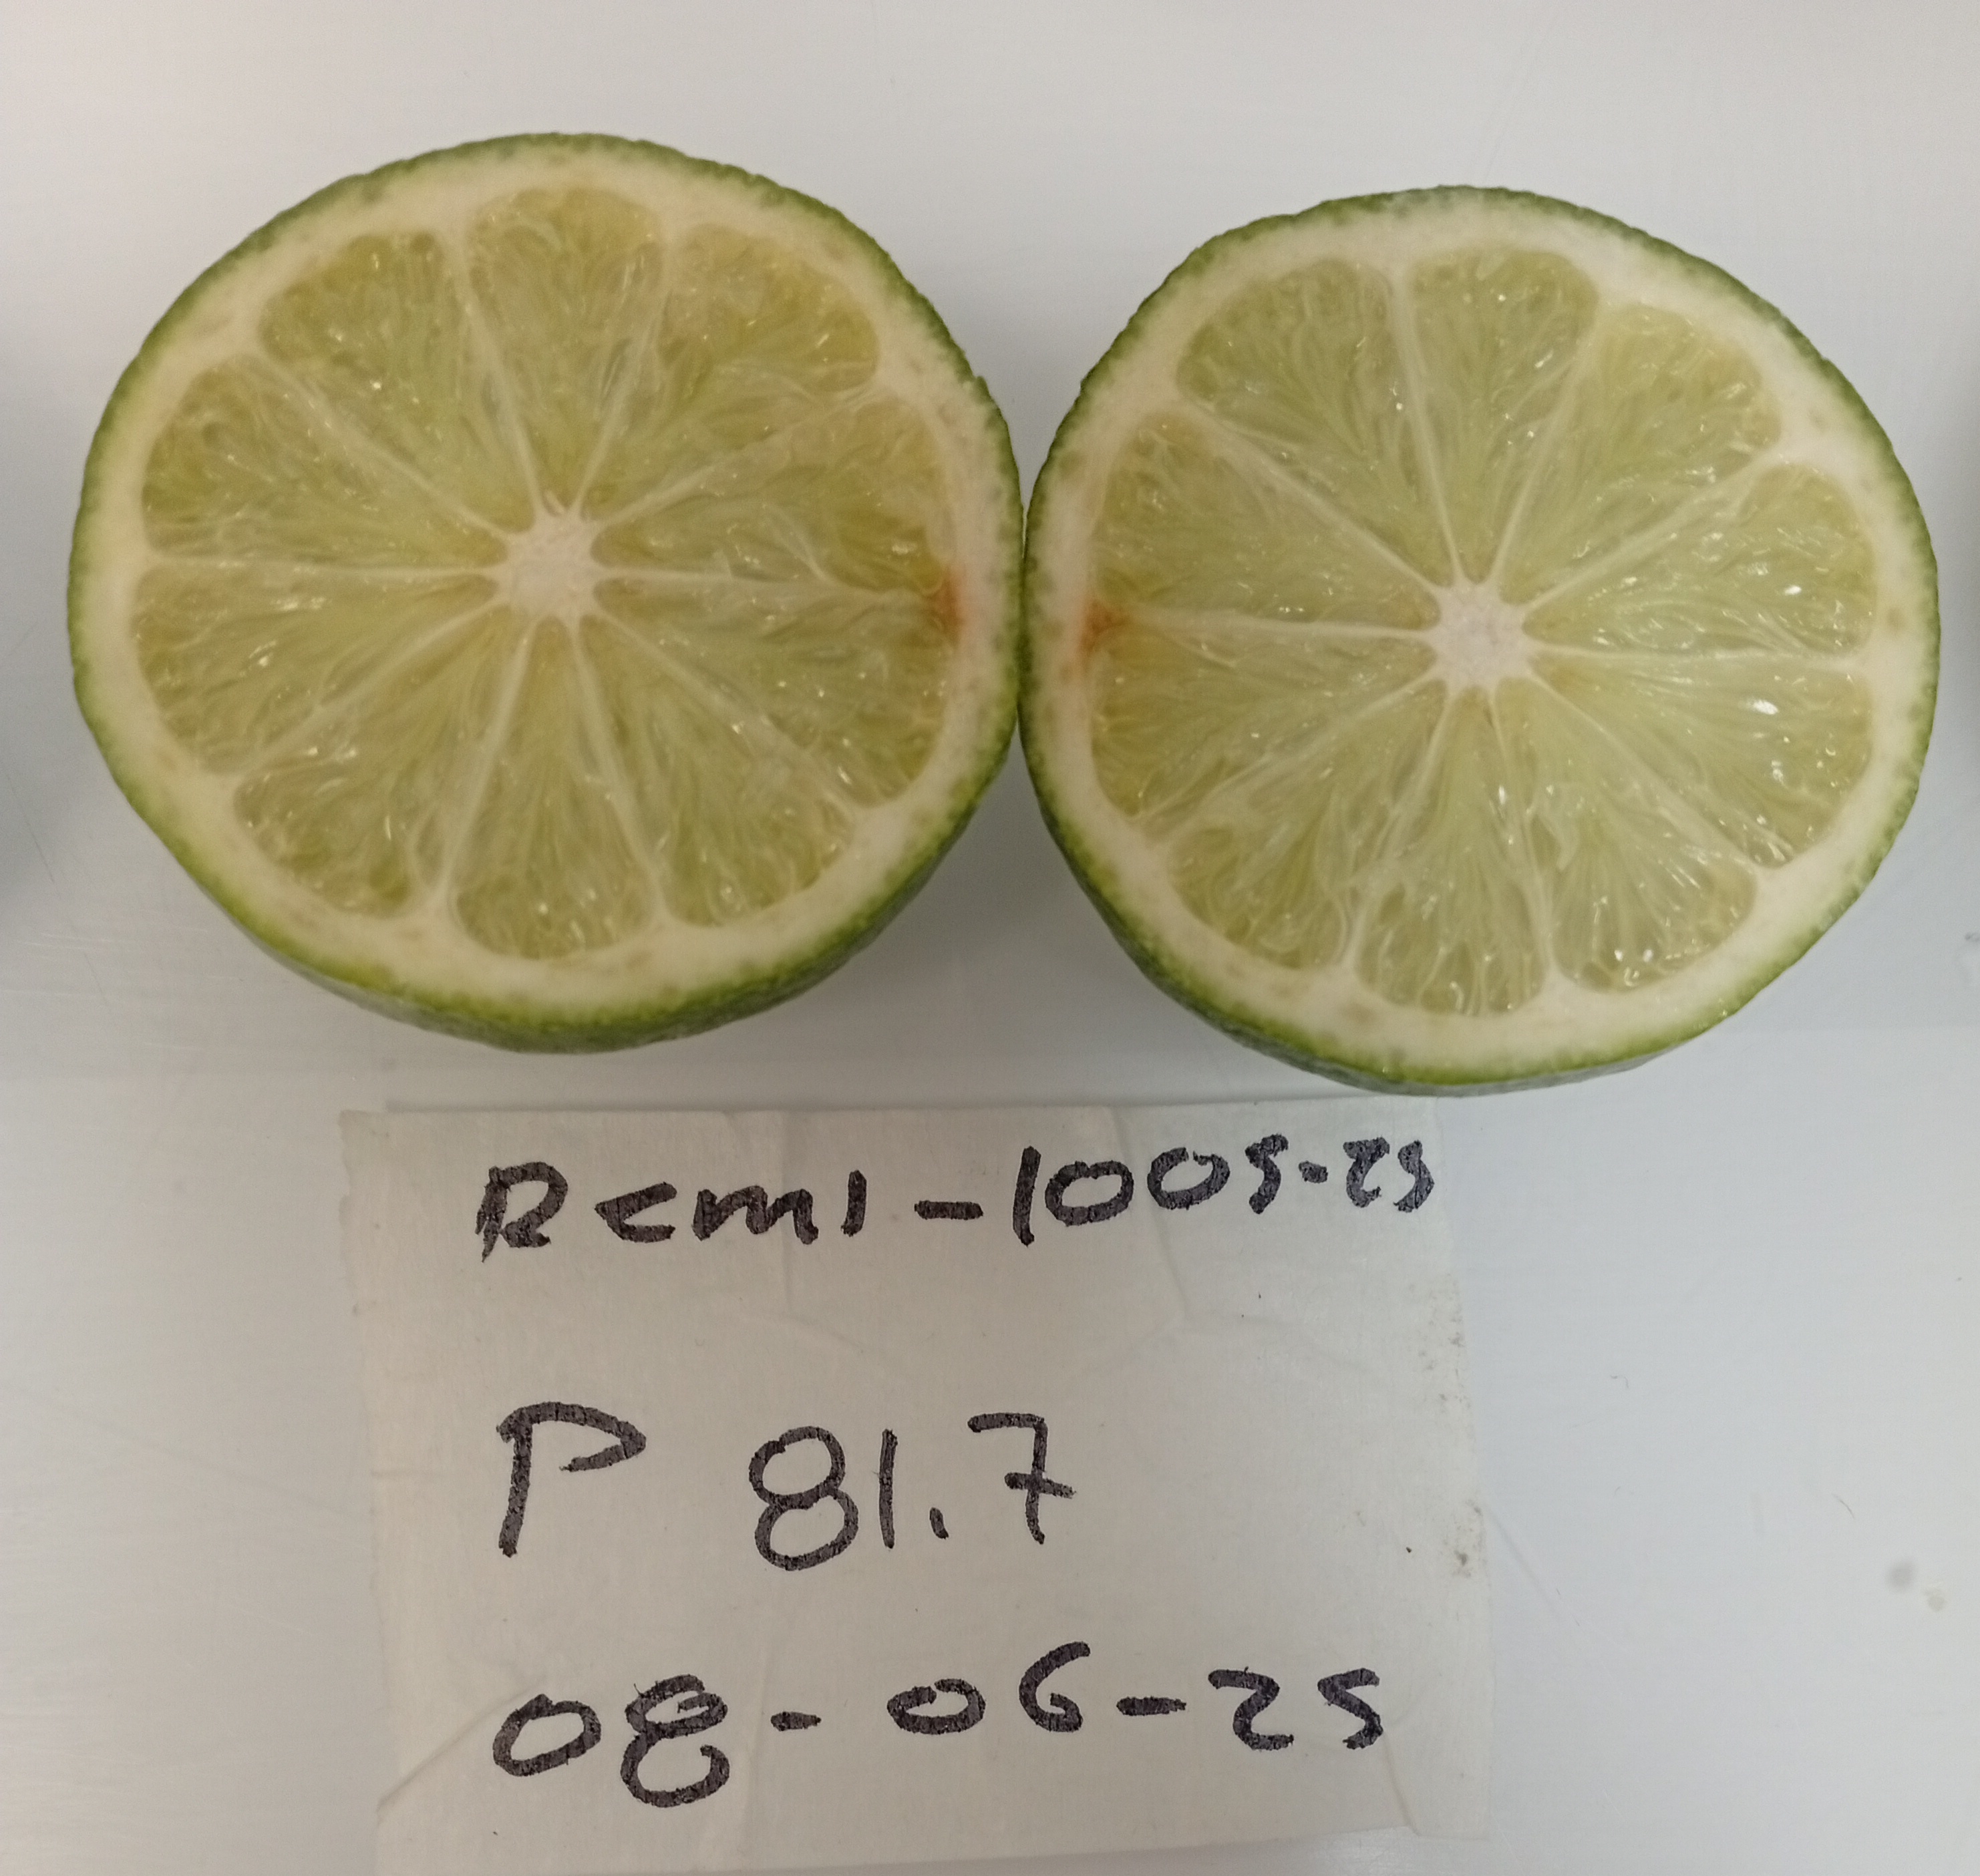 Rcm1-1005-25
P 81.7
08-06-25